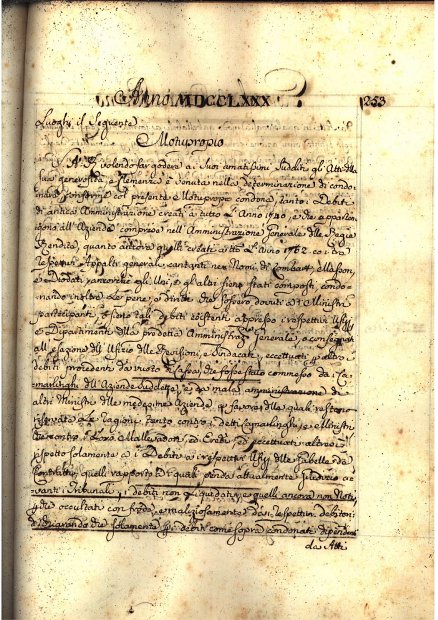 Anno MDCCLXXX 253
Luoghi il Seguente
Motuproprio
S. A. R. volendo far godere a' Suoi amatissimi Sudditi gli Atti della
sua generosità, e Clemenza è venuta nella determinazione di condo-
nare, conforme col presente Motuproprio condona, tanto i Debiti
di antica Amministrazione creati a tutto l'Anno 1740, e che apparten-
gono all'Aziende comprese nell'Amministrazione Generale delle Regie
Rendite, quanto ancora quelli creati a tutto l'Anno 1762 co i
respettivi Appalti generali, cantanti ne' Nomi, di Lombart,
e Diodati, ancorchè gli Uni, e gli altri siano stati composti, condo-
nando inoltre le pene, o diritti che fossero dovuti a' Ministri
partecipanti, e sono tali debiti esistenti appresso i respettivi Ufizj
e Dipartimenti della predetta Amministraz. Generale, o consegnati
all'esazione dell'Ufizio delle Revisioni, e Sindacati, eccettuati però i
debiti procedenti da vuoto di Cassa, che fosse stato commesso da' Ca-
marlinghi dell'Aziende suddette, e da mala amministrazione di
altri Ministri delle medesime Aziende, a favore delle quali restano
riservate le Ragioni tanto contro i detti Camarlinghi, e Ministri
che contro i Loro Mallevadori, ed Eredi, ed eccettuati altresì
rispetto solamente a' Debiti a' respettivi Ufizj delle Gabelle de'
Contratti, quelli rapporto a' quali penda attualmente
vanti i Tribunali, i debiti non liquidati, e quelli ancora non Noti
e che occultati con frode, e maliziosamente da' respettivi debitori
riguardando che solamente i debiti come sopra condonati dipendenti
da Atti